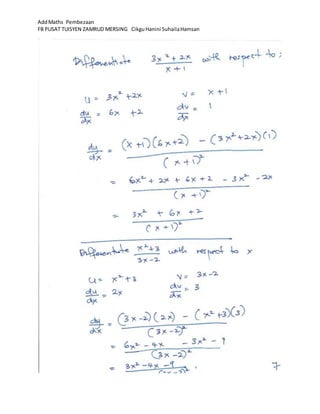 Add Maths Pembezaan
FB PUSAT TUISYEN ZAMRUD MERSING Cikgu Hanini Suhaila Hamsan
Differentiate 3x² + 2x / x + 1 with respect to ;
u = 3x² + 2x v = x + 1
du/dx = 6x + 2 dv/dx = 1
dy/dx = (x + 1)(6x + 2) - (3x² + 2x)(1) / (x + 1)²
= 6x² + 2x + 6x + 2 - 3x² - 2x / (x + 1)²
= 3x² + 6x + 2 / (x + 1)²
Differentiate x² + 3 / 3x - 2 with respect to x
u = x² + 3 v = 3x - 2
du/dx = 2x dv/dx = 3
dy/dx = (3x - 2)(2x) - (x² + 3)(3) / (3x - 2)²
= 6x² - 4x - 3x² - 9 / (3x - 2)²
= 3x² - 4x - 9
7